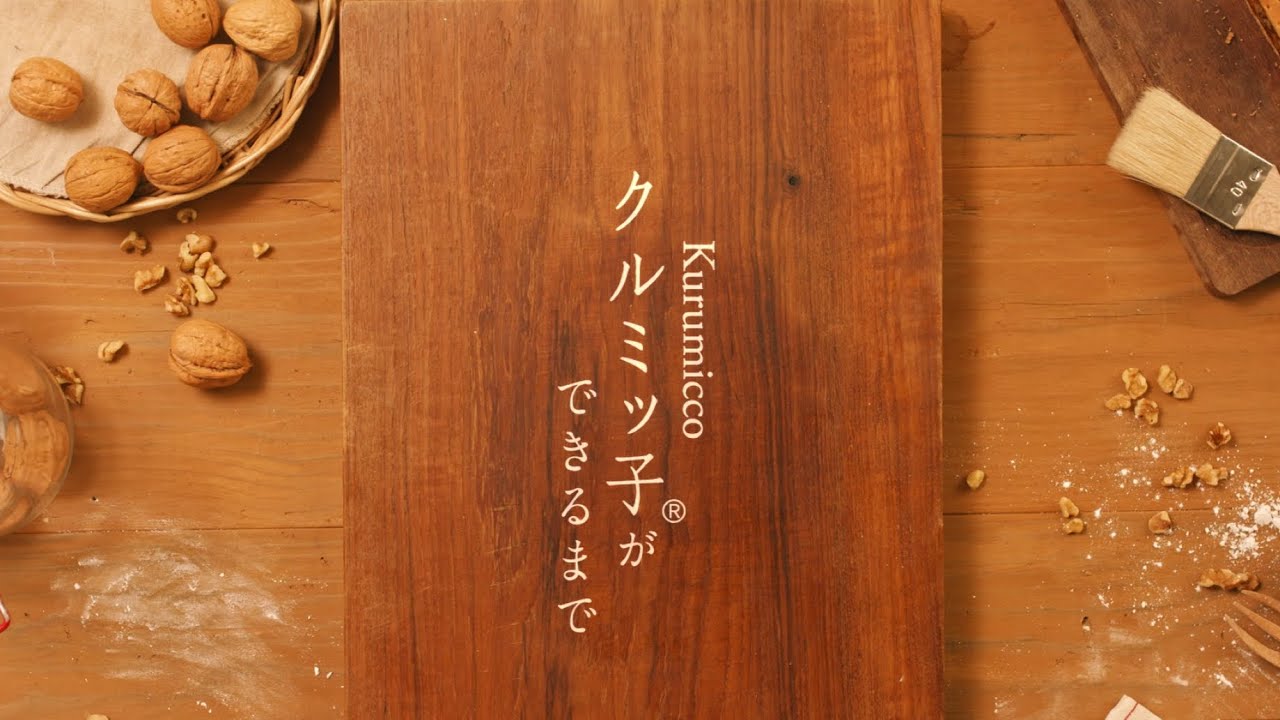 Kurumicco
クルミッ子®が
できるまで
40